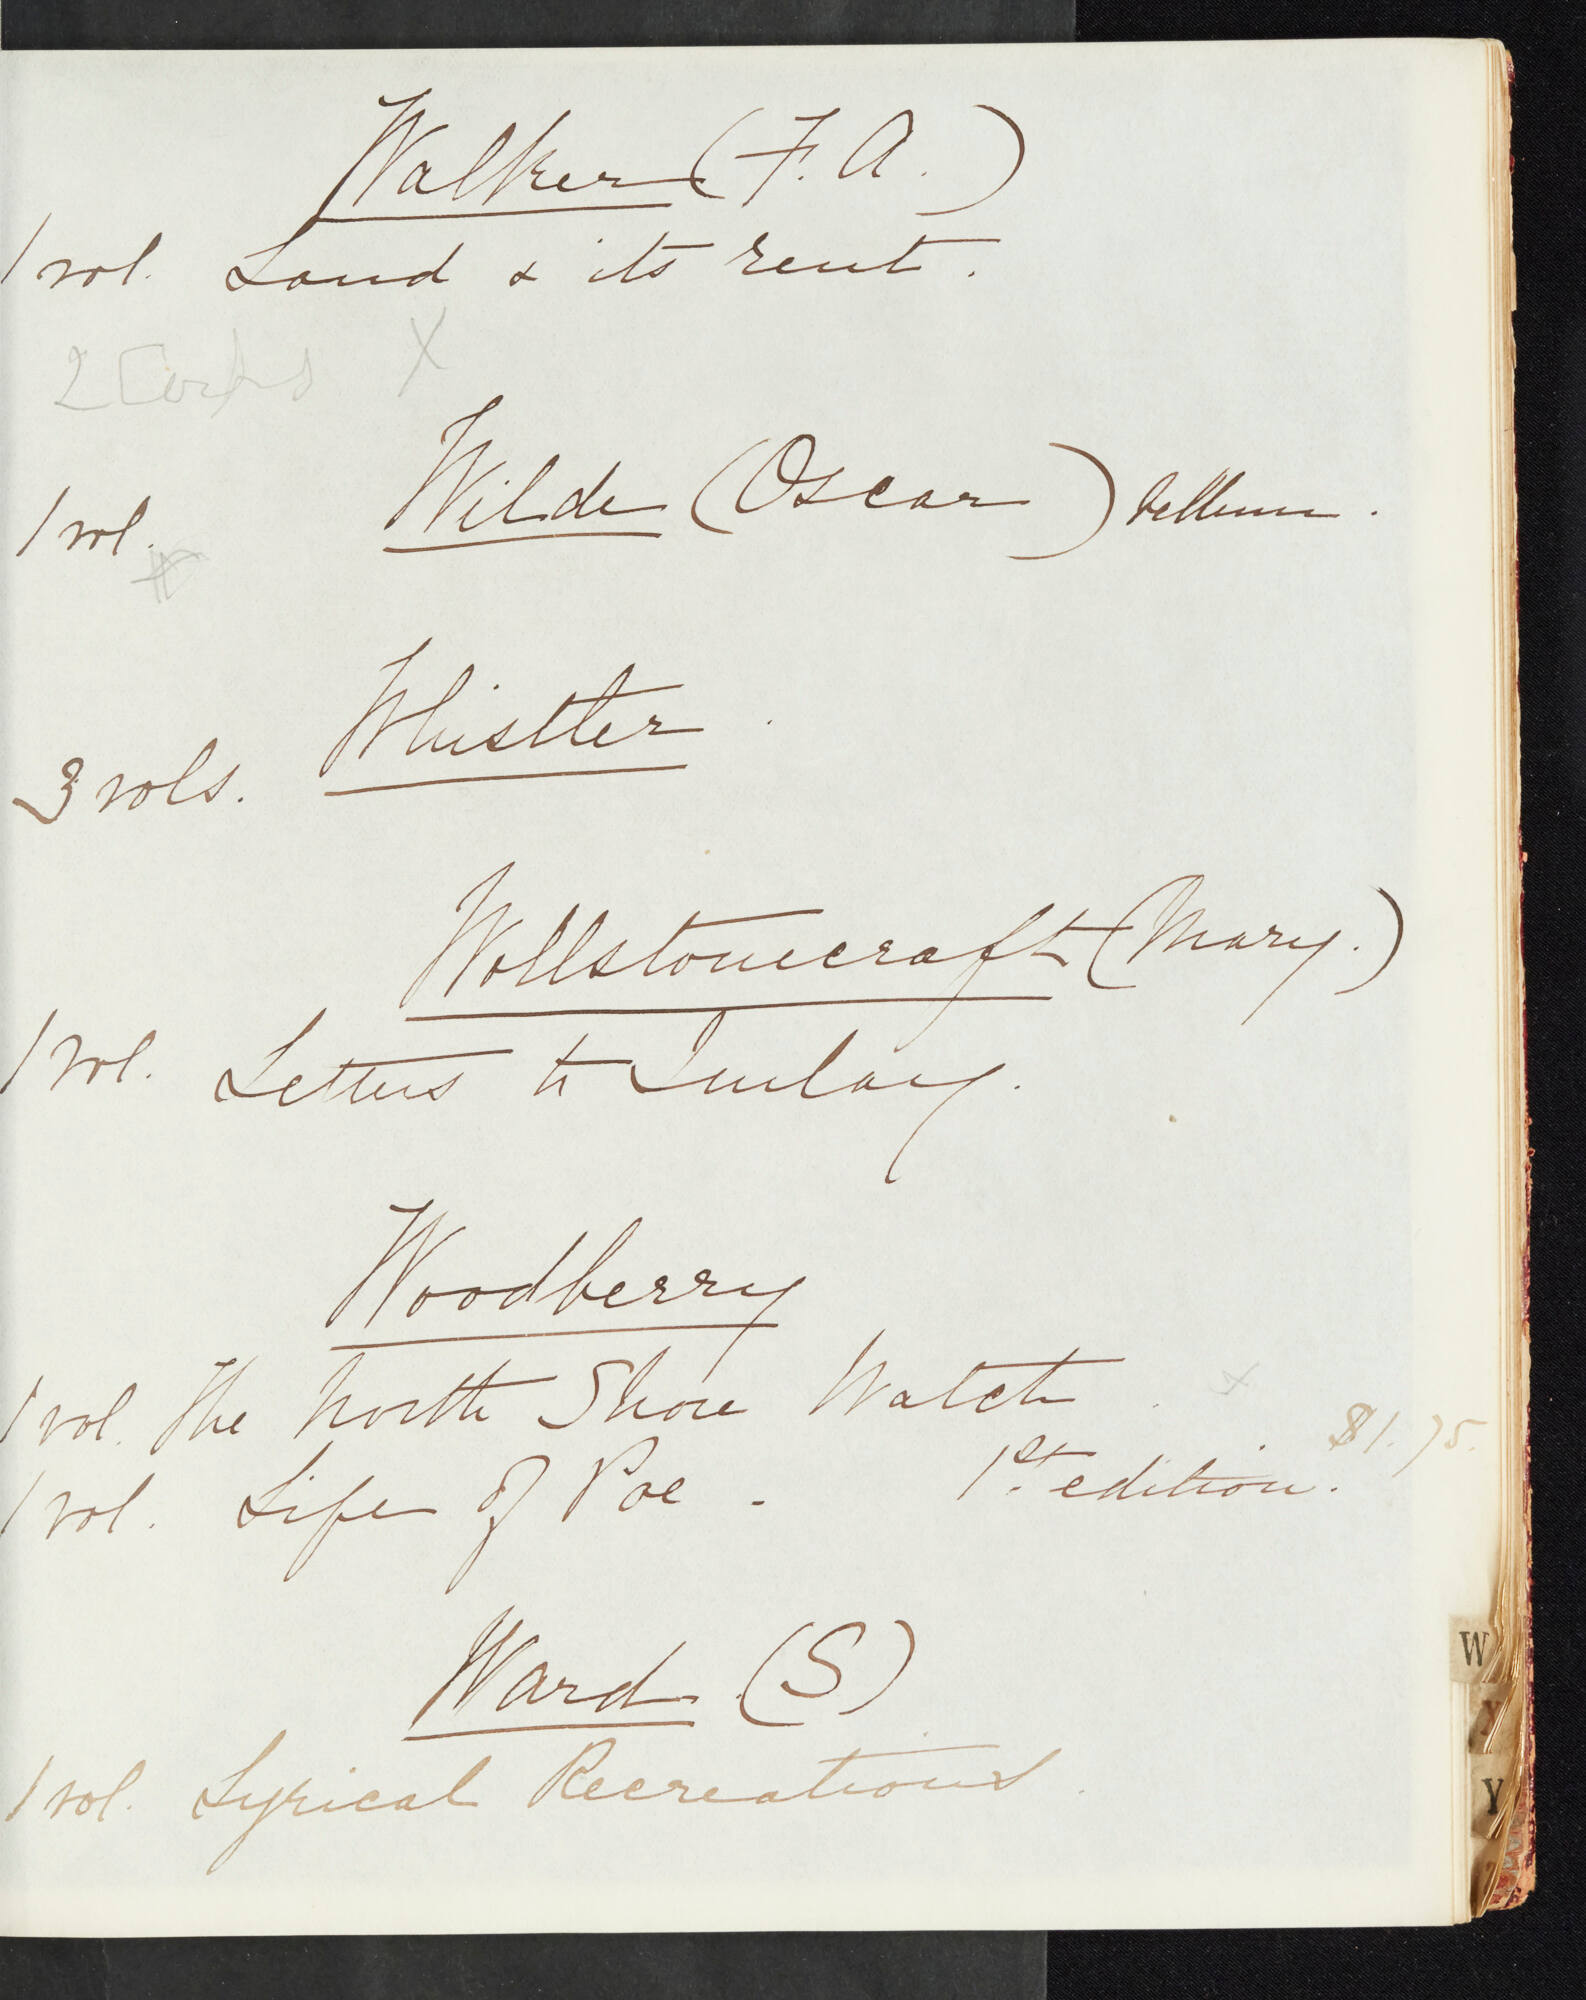 Walker (F. A.)
1 vol. Land & its rent.
2 Corps X
1 vol. Wilde (Oscar) Vellum.
Whistler.
3 vols.
Wollstonecraft (Mary.)
1 vol. Letters to Imlay.
Woodberry
1 vol. The North Shore Watch. x
$1.75.
1 vol. Life of Poe. 1st. edition.
Ward (S)
1 vol. Lyrical Recreations.
W
Y
Y